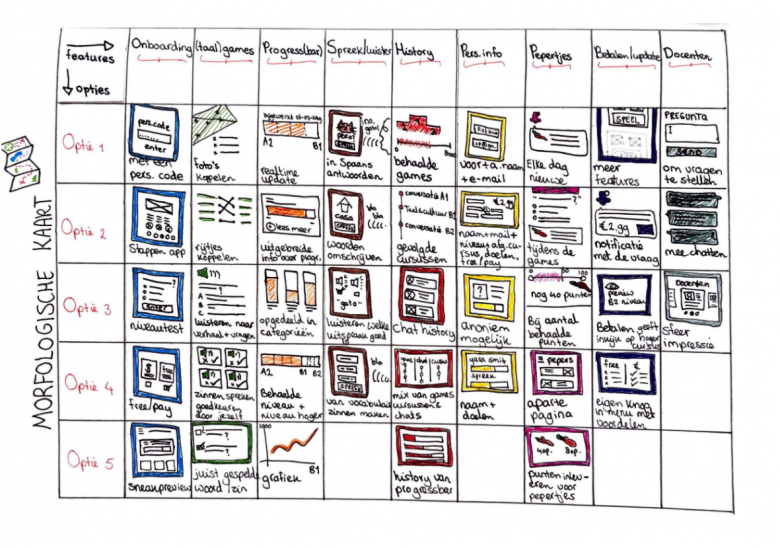 MORFOLOGISCHE KAART
features
opties
Onboarding
(taal)games
Progress(bar)
Spreek/luister
History
Pers. info
Pepertjes
Betalen/update
Docenten
Optie 1
pers.code
enter
met een
pers. code
foto's
koppelen
A2 B1
realtime
update
in Spaans
antwoorden
behaalde
games
voor + a. naam
+ e-mail
Elke dag
nieuwe
SPEEL
meer
features
PREGUNTA
SEND
om vragen
te stellen
Optie 2
stappen app
rijtjes
koppelen
lees meer
uitgebreide
info over progr.
CASA
bla
bla
woorden
omschrijven
conversatie A1
Taal&cultuur B1
conversatie B2
gevolgde
cursussen
€2.99
naam+mail+
niveau afg.cur-
sus, doelen,
free/pay
?
tijdens de
games
€2.99
notificatie
met de vraag
mee chatten
Optie 3
niveautest
luisteren naar
verhaal + vragen
opgedeeld in
categorieën
"gato"
luisteren welke
uitspraak goed
chat history
?
anoniem
mogelijk
nog 40 punten
Bij aantal
behaalde
punten
preview
B2 niveau
Betalen geeft
inkijk op hoger
cursus
Docenten
sfeer
impressie
Optie 4
free/pay
zinnen spreken
goedkeuren
door jezelf
A2 B1 B2
Behaalde
niveau +
niveau hoger
bla
van vocabulair
zinnen maken
mix van games
cursussen &
chats
yara smit
spreek
naam +
doelen
pepers
aparte
pagina
free
eigen knop
in menu met
voordelen
Optie 5
sneakpreview
?
juist gespelde
woord/zin
1000
B1
grafiek
history van
progressbar
40p. 80p.
punten inlev-
eren voor
pepertjes